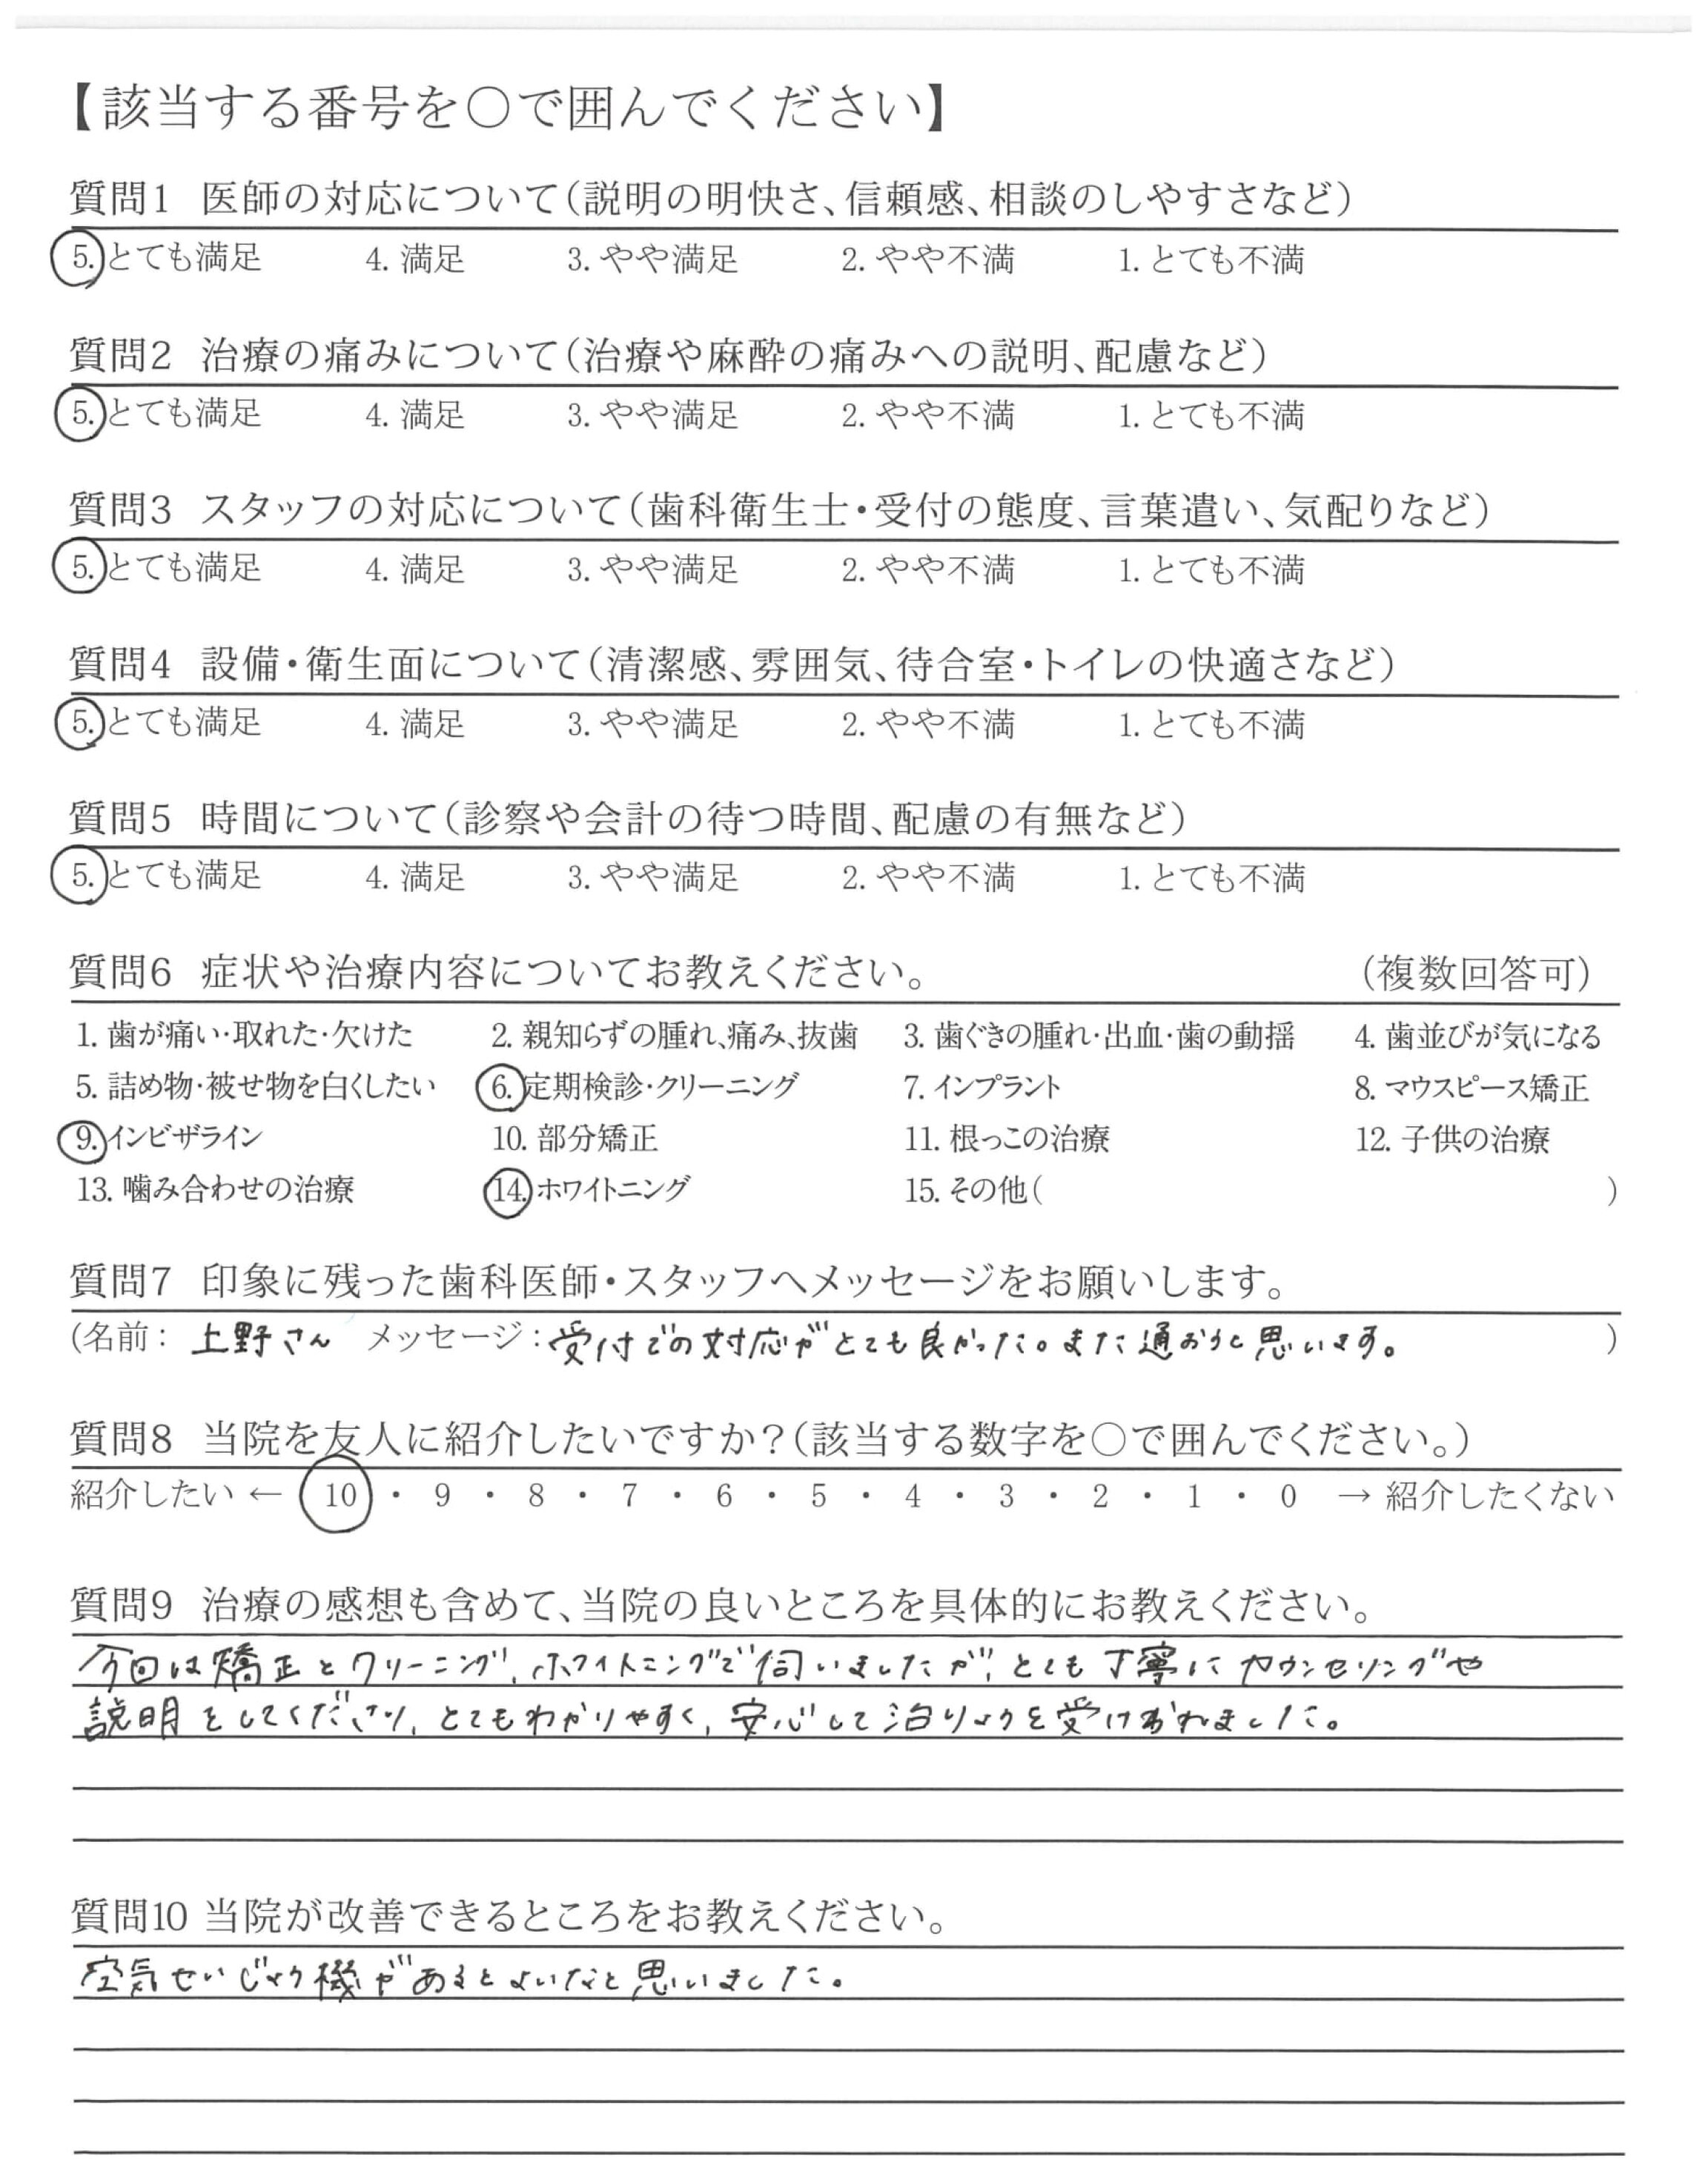 【該当する番号を○で囲んでください】
質問1 医師の対応について(説明の明快さ、信頼感、相談のしやすさなど)
5. とても満足 4. 満足 3. やや満足 2. やや不満 1. とても不満
質問2 治療の痛みについて(治療や麻酔の痛みへの説明、配慮など)
5. とても満足 4. 満足 3. やや満足 2. やや不満 1. とても不満
質問3 スタッフの対応について(歯科衛生士・受付の態度、言葉遣い、気配りなど)
5. とても満足 4. 満足 3. やや満足 2. やや不満 1. とても不満
質問4 設備・衛生面について(清潔感、雰囲気、待合室・トイレの快適さなど)
5. とても満足 4. 満足 3. やや満足 2. やや不満 1. とても不満
質問5 時間について(診察や会計の待つ時間、配慮の有無など)
5. とても満足 4. 満足 3. やや満足 2. やや不満 1. とても不満
質問6 症状や治療内容についてお教えください。 (複数回答可)
1. 歯が痛い・取れた・欠けた 2. 親知らずの腫れ、痛み、抜歯 3. 歯ぐきの腫れ・出血・歯の動揺 4. 歯並びが気になる
5. 詰め物・被せ物を白くしたい 6. 定期検診・クリーニング 7. インプラント 8. マウスピース矯正
9. インビザライン 10. 部分矯正 11. 根っこの治療 12. 子供の治療
13. 噛み合わせの治療 14. ホワイトニング 15. その他( )
質問7 印象に残った歯科医師・スタッフへメッセージをお願いします。
(名前: 上野さん メッセージ: 受付での対応がとても良かった。また通おうと思います。 )
質問8 当院を友人に紹介したいですか?(該当する数字を○で囲んでください。)
紹介したい ← 10 ・ 9 ・ 8 ・ 7 ・ 6 ・ 5 ・ 4 ・ 3 ・ 2 ・ 1 ・ 0 → 紹介したくない
質問9 治療の感想も含めて、当院の良いところを具体的にお教えください。
今回は矯正とクリーニング、ホワイトニングで伺いましたが、とても丁寧にカウンセリングや
説明をしてくださり、とてもわかりやすく、安心して治りょうを受けられました。
質問10 当院が改善できるところをお教えください。
空気せいじょう機があるとよいなと思いました。